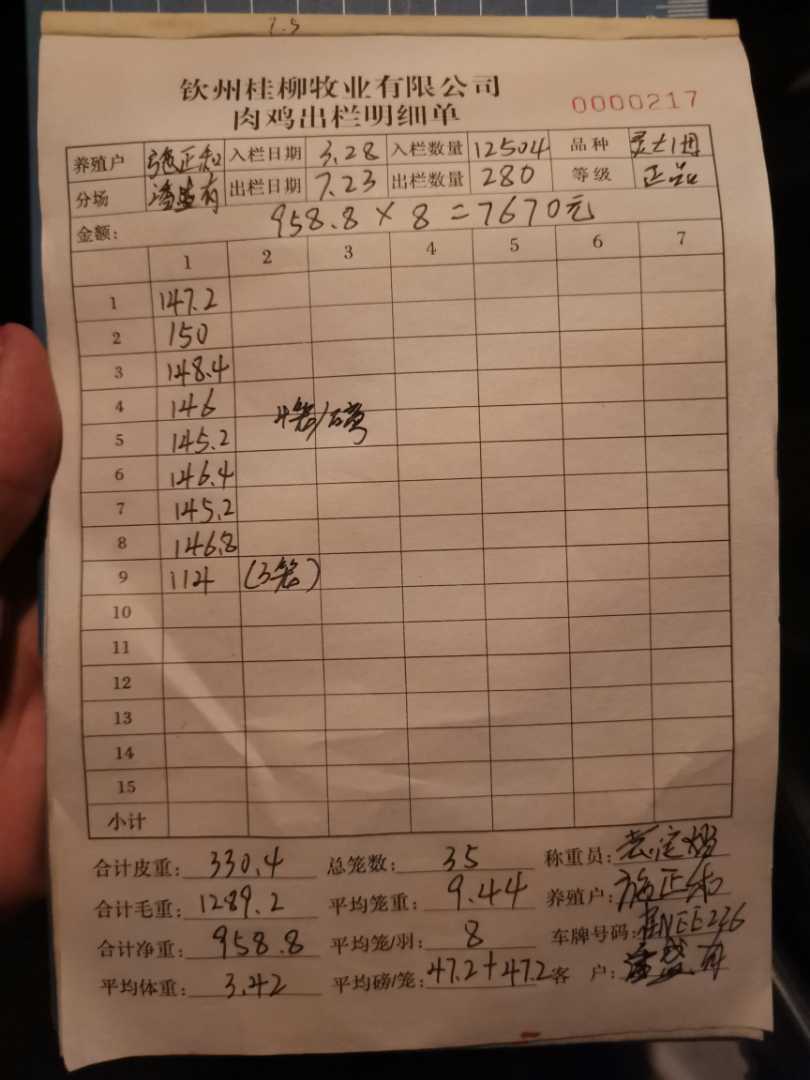 7.5
钦州桂柳牧业有限公司
肉鸡出栏明细单 0000217
养殖户 施正和 入栏日期 3.28 入栏数量 12504 品种
分场 潘盛有 出栏日期 7.23 出栏数量 280 等级 正品
金额: 958.8 × 8 = 7670元
1 2 3 4 5 6 7
1 147.2
2 150
3 148.4
4 146 4笼/磅
5 145.2
6 146.4
7 145.2
8 146.8
9 114 (3笼)
10
11
12
13
14
15
小计
合计皮重: 330.4 总笼数: 35 称重员:
合计毛重: 1289.2 平均笼重: 9.44 养殖户: 施正和
合计净重: 958.8 平均笼/羽: 8 车牌号码: 桂NEE236
平均体重: 3.42 平均磅/笼: 47.2+47.2 客 户: 潘盛有